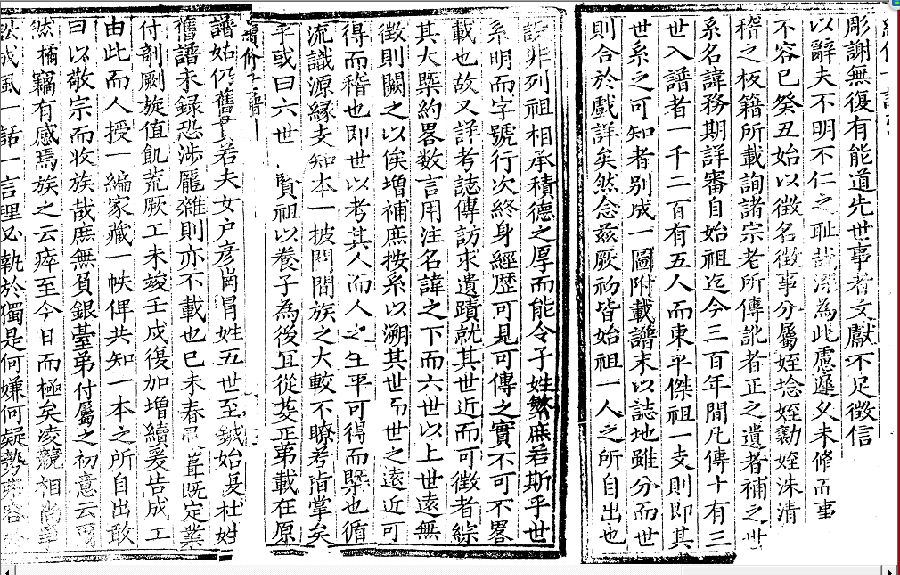 彫謝無復有能道先世事者文獻不足徵信
以辭夫不明不仁之耻哉深為此慮遲久未修而事
不容已癸丑始以徵名徵事分屬姪埝姪勷姪洙清
稽之板籍所載詢諸宗老所傳訛者正之遺者補之世
系名諱務期詳審自始祖迄今三百年間凡傳十有三
世入譜者一千二百有五人而東平傑祖一支則即其
世系之可知者別成一圖附載譜末以誌地雖分而世
則合於戲詳矣然念茲厥初皆始祖一人之所自出也
非列祖相承積德之厚而能令子姓繁庶若斯乎世
系明而字號行次終身經歷可見可傳之實不可不畧
載也故又詳考誌傳訪求遺蹟就其世近而可徵者綜
其大槩約畧数言用注名諱之下而六世以上世遠無
徵則闕之以俟增補庶按系以溯其世而世之遠近可
得而稽也即世以考其人而人之生平可得而槩也循
流識源緣支知本一披閱間族之大較不瞭若指掌矣
乎或曰六世 賢祖以養子為後宜從芟正弟載在原
譜始仍舊貫若夫女户彦尚冒姓五世至鉞始復杜姓
舊譜未録恐涉厖雜則亦不載也已未春 葺既定業
付剞劂旋值飢荒厥工未竣壬戌復加增續爰告成工
由此而人授一編家藏一帙俾共知一本之所自出敢
曰以敬宗而收族哉庶無負銀臺弟付屬之初意云
然楠竊有感焉族之云瘁至今日而極矣凌競相尚
成風一話一言理必執於獨是何嫌何疑勢